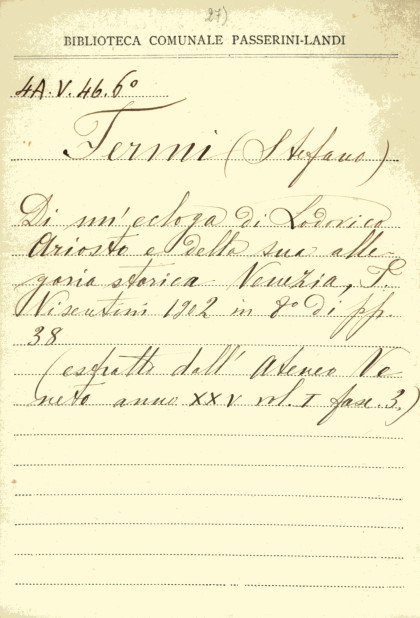 27)
BIBLIOTECA COMUNALE PASSERINI-LANDI
4A.V.46.6°
Fermi (Stefano)
Di un'ecloga di Lodovico
Ariosto e della sua alle-
goria storica - Venezia, F.
Visentini 1902 in 8° di pp.
38
(estratto dall' Ateneo Ve-
neto anno XXV vol. I fasc. 3.)